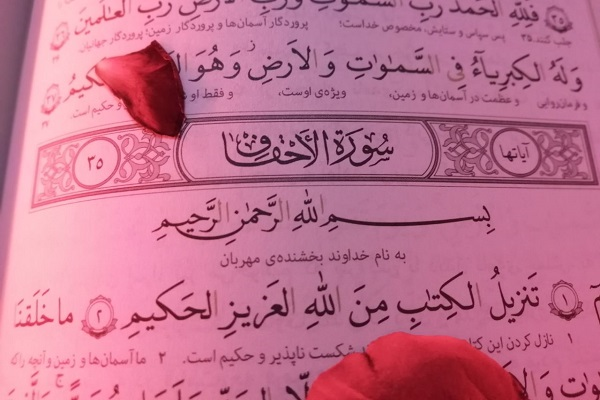 فَلِلّٰهِ الحَمدُ رَبِّ السَّمٰوٰتِ وَرَبِّ الاَرضِ رَبِّ العٰلَمينَ ٣٦
جلب کنند. ٣٥ پس سپاس و ستایش، مخصوص خداست؛ پروردگار آسمان‌ها و پروردگار زمین؛ پروردگار جهانیان
وَلَهُ الكِبرِياءُ فِي السَّمٰوٰتِ وَالاَرضِ وَهُوَ الحَكيمُ ٣٧
و فرمان‌روایی و عظمت در آسمان‌ها و زمین، ویژه‌ی اوست، و فقط او و حکیم است.
آیاتها سُورَةُ الْأَحْقَاف ٣٥
بِسـمِ اللهِ الرَّحمٰنِ الرَّحيمِ
به نام خداوند بخشنده‌ی مهربان
١ تَنزيلُ الكِتٰبِ مِنَ اللهِ العَزيزِ الحَكيمِ ٢ ما خَلَقنَا
١ نازل کردن این کتاب شکست ناپذیر و حکیم است. ٢ ما آسمان‌ها و زمین و آنچه را که